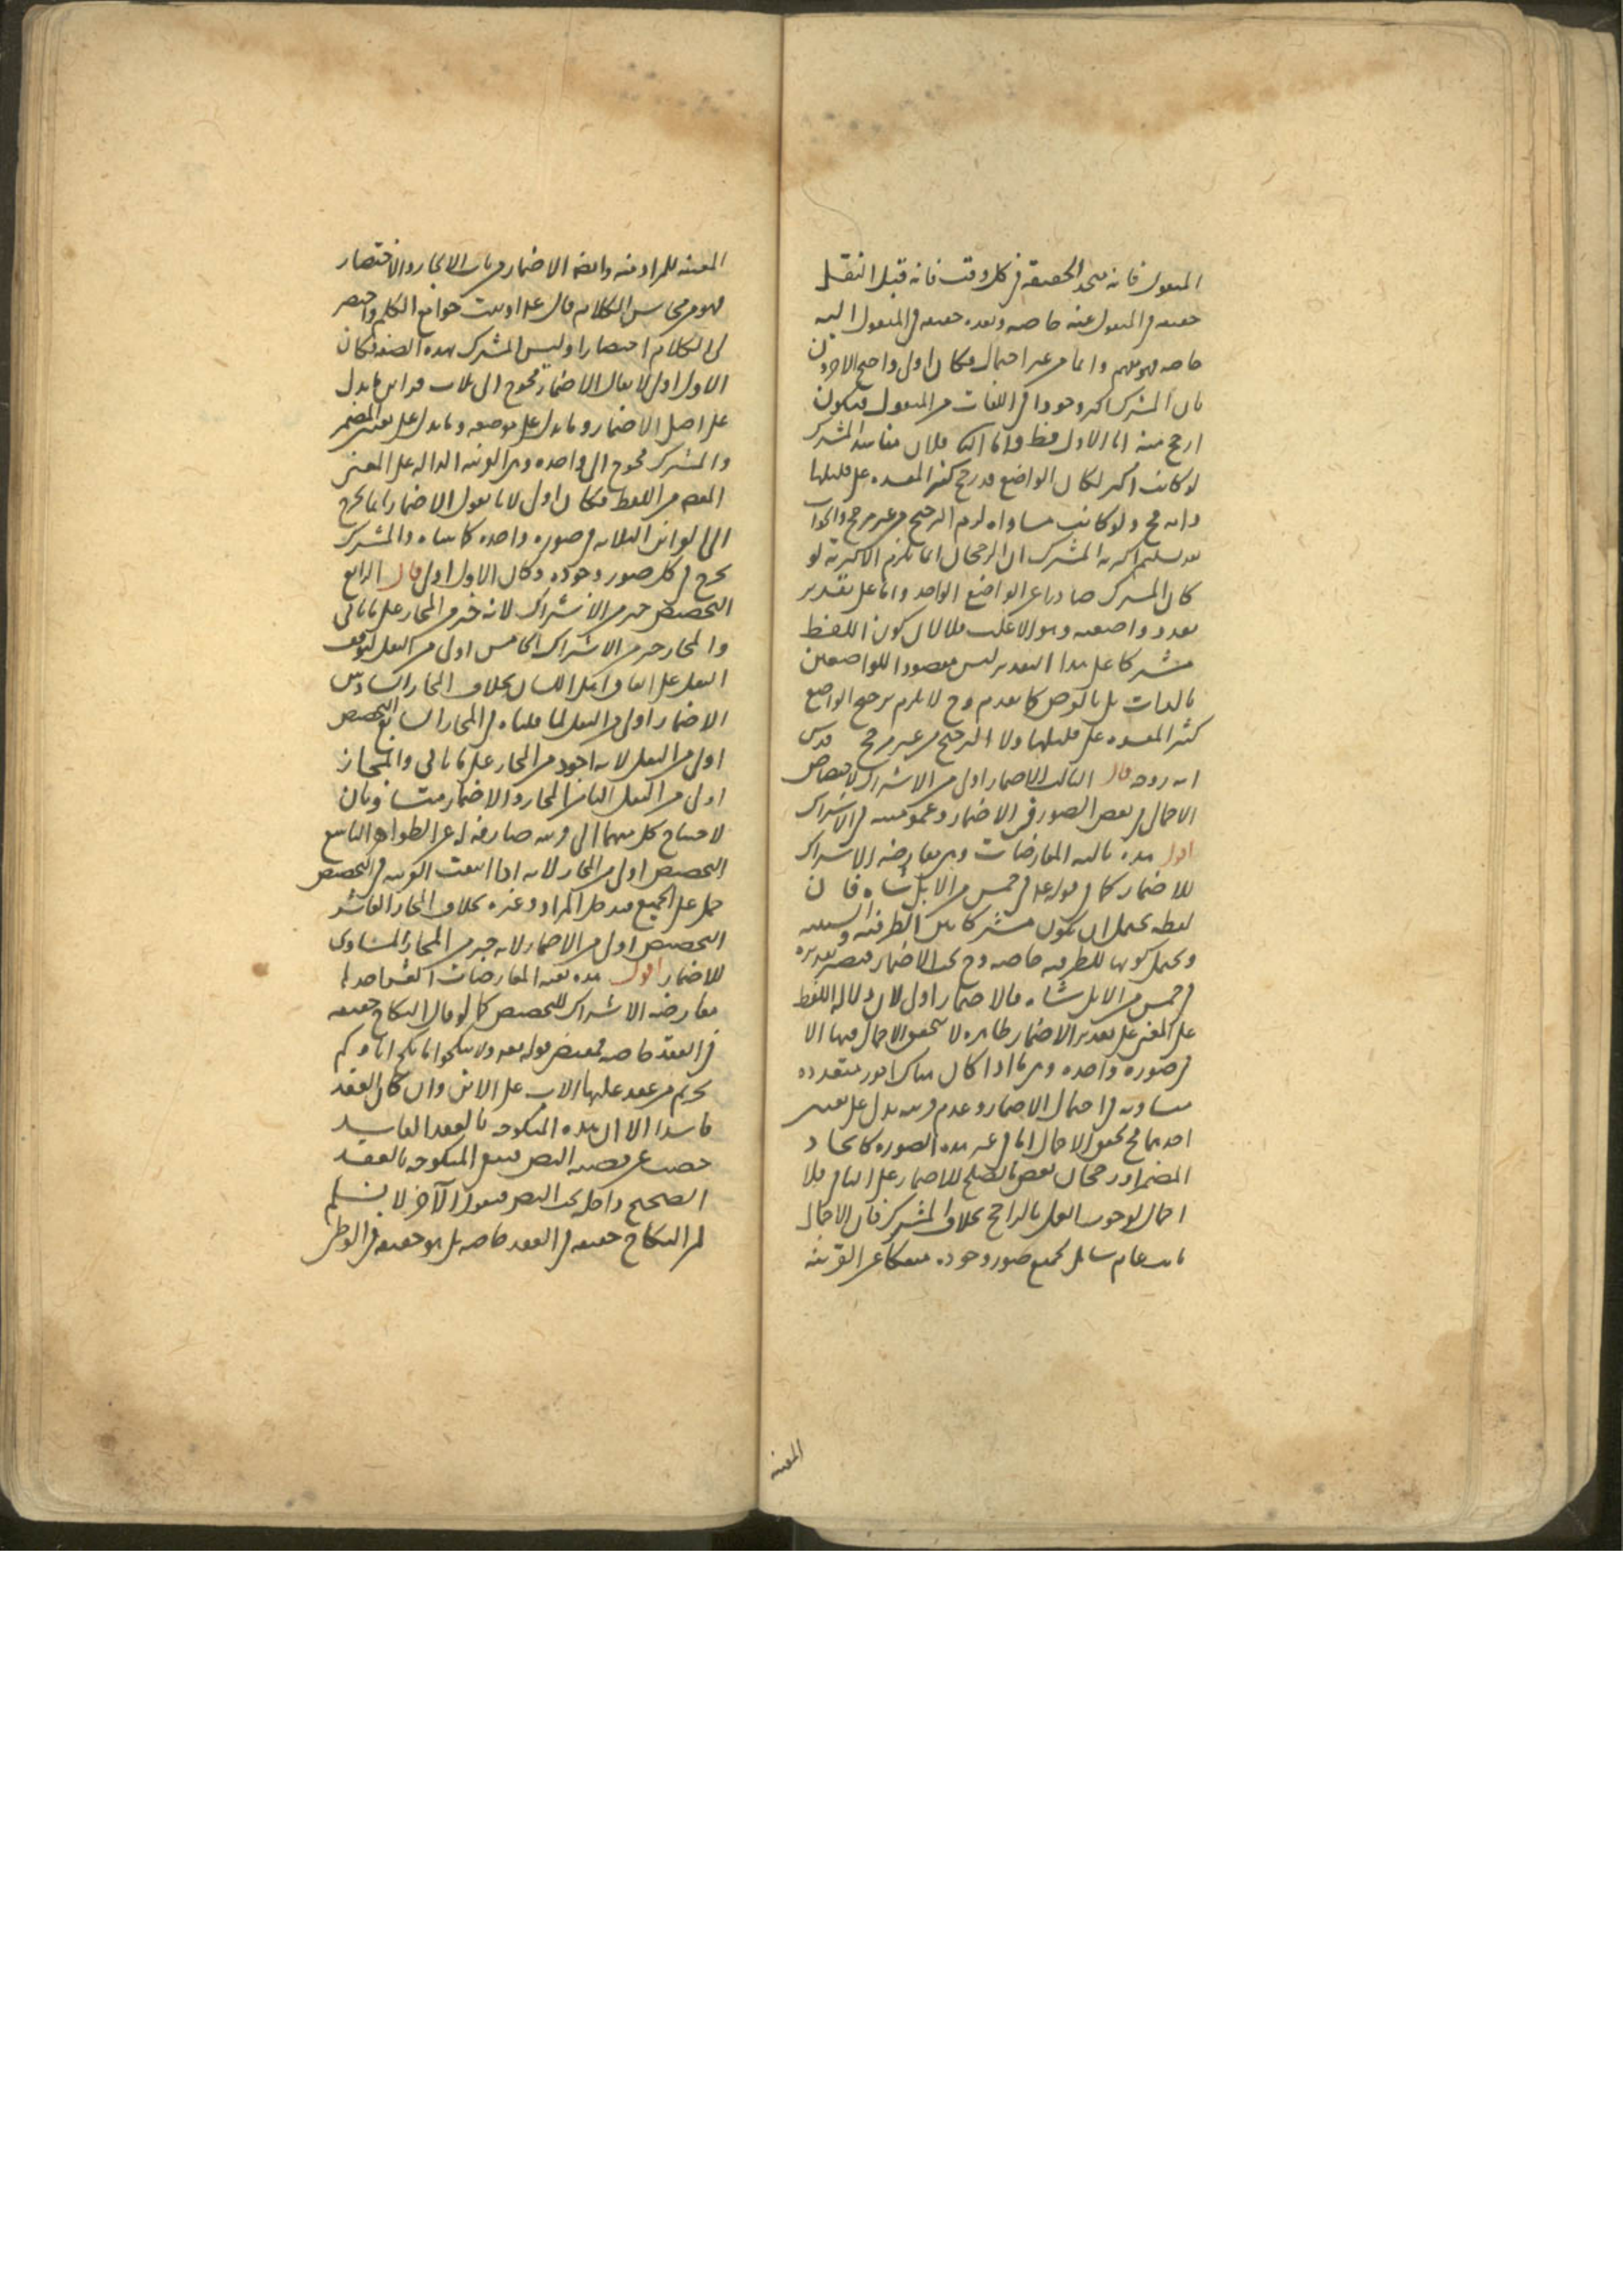 المنقول فانه متحد الحقيقة في كل وقت فانه قبل النقل
حقيقة في المنقول عنه خاصة وبعده حقيقة في المنقول اليه
خاصة فهو يفهم دائما من غير احتمال فكان اولى واحتج الآخرون
بان المشترك اكثر وجودا في اللغات من المنقول فيكون
ارجح منه اما الاول فظ واما الثاني فلان مفاسد المشترك
لو كانت اكثر لكان الواضع قد رجح كثير المفسدة على قليلها
وانه مح ولو كانت مساواة لزم الترجيح من غير مرجح والجواب
بعد تسليم اكثرية المشترك ان الرجحان انما يلزم الاكثرية لو
كان المشترك صادرا عن الواضع الواحد واما على تقدير
تعدد واضعيه وهو الاغلب فلا لان كون اللفظ
مشتركا على هذا التقدير ليس مقصودا للواضعين
بالذات بل بالعرض كما تقدم وح لا يلزم ترجيح الواضع
كثير المفسدة على قليلها ولا الترجيح من غير مرجح قدس
الله روحه قال الثالث الاضمار اولى من الاشتراك لاختصاص
الاجمال ببعض الصور في الاضمار وعموميته في الاشتراك
اقول هذه ثالثة المعارضات وهي معارضة الاشتراك
للاضمار كما في قوله علم في خمس من الابل شاة فان
لفظه يحتمل ان يكون مشتركا بين الظرفية والسببية
ويحتمل كونها للظرفية خاصة وح يجب الاضمار فيصير تقديره
في خمس من الابل شاة فالاضمار اولى لان دلالة اللفظ
على المعنى على تقدير الاضمار ظاهرة لا يتحقق الاجمال فيها الا
في صورة واحدة وهي ما اذا كان هناك امور متعددة
متساوية في احتمال الاضمار وعدم قرينة يدل على تعيين
احدها فح يتحقق الاجمال اما في غير هذه الصورة كاتحاد
المضمر او رجحان بعض ما يصلح للاضمار على الباقي فلا
اجمال لوجوب العمل بالراجح بخلاف المشترك فان الاجمال
ثابت عام شامل لجميع صور وجوده منفكا عن القرينة
المعينة
المعينة للمراد منه وايضا الاضمار من باب الايجاز والاختصار
فهو من محاسن الكلام قال علم اوتيت جوامع الكلم واختصر
لي الكلام اختصارا وليس المشترك بهذه الصفة فكان
الاول اولى لا يقال الاضمار محوج الى ثلاث قراين ما يدل
على اصل الاضمار وما يدل على موضعه وما يدل على تعيين المضمر
والمشترك محوج الى واحدة وهي القرينة الدالة على المعنى
من اللفظ فكان اولى لانا نقول الاضمار انما يحوج
الى القراين الثلاثة في صورة واحدة كما بيناه والمشترك
يحوج في كل صور وجوده وكان الاول اولى قال الرابع
التخصيص خير من الاشتراك لانه خير من المجاز على ما يأتي
والمجاز خير من الاشتراك الخامس اولى من النقل لتوقف
النقل على اتفاق اهل اللسان بخلاف المجاز السادس
الاضمار اولى من النقل لما قلناه في المجاز السابع التخصيص
اولى من النقل لانه اجود من المجاز على ما يأتي والمجاز
اولى من النقل الثامن المجاز والاضمار متساويان
لاحتياج كل منهما الى قرينة صارفة له عن الظواهر التاسع
التخصيص اولى من المجاز لانه اذا انتفت القرينة في التخصيص
حمل على الجميع فيدخل المراد وغيره بخلاف المجاز العاشر
التخصيص اولى من الاضمار لانه خير من المجاز المساوي
للاضمار اقول هذه بقية المعارضات العشر احدها
معارضة الاشتراك للتخصيص كما لو قال النكاح حقيقة
في العقد خاصة فمقتضى قوله تعه ولا تنكحوا ما نكح اباؤكم
تحريم من عقد عليها الاب على الابن وان كان العقد
فاسدا الا ان هذه المنكوحة بالعقد الفاسد
خصت عن قضية النص فتبقى المنكوحة بالعقد
الصحيح داخلة تحت النص فيقول الآخر لا نسلم
ان النكاح حقيقة في العقد خاصة بل هو حقيقة في الوطي